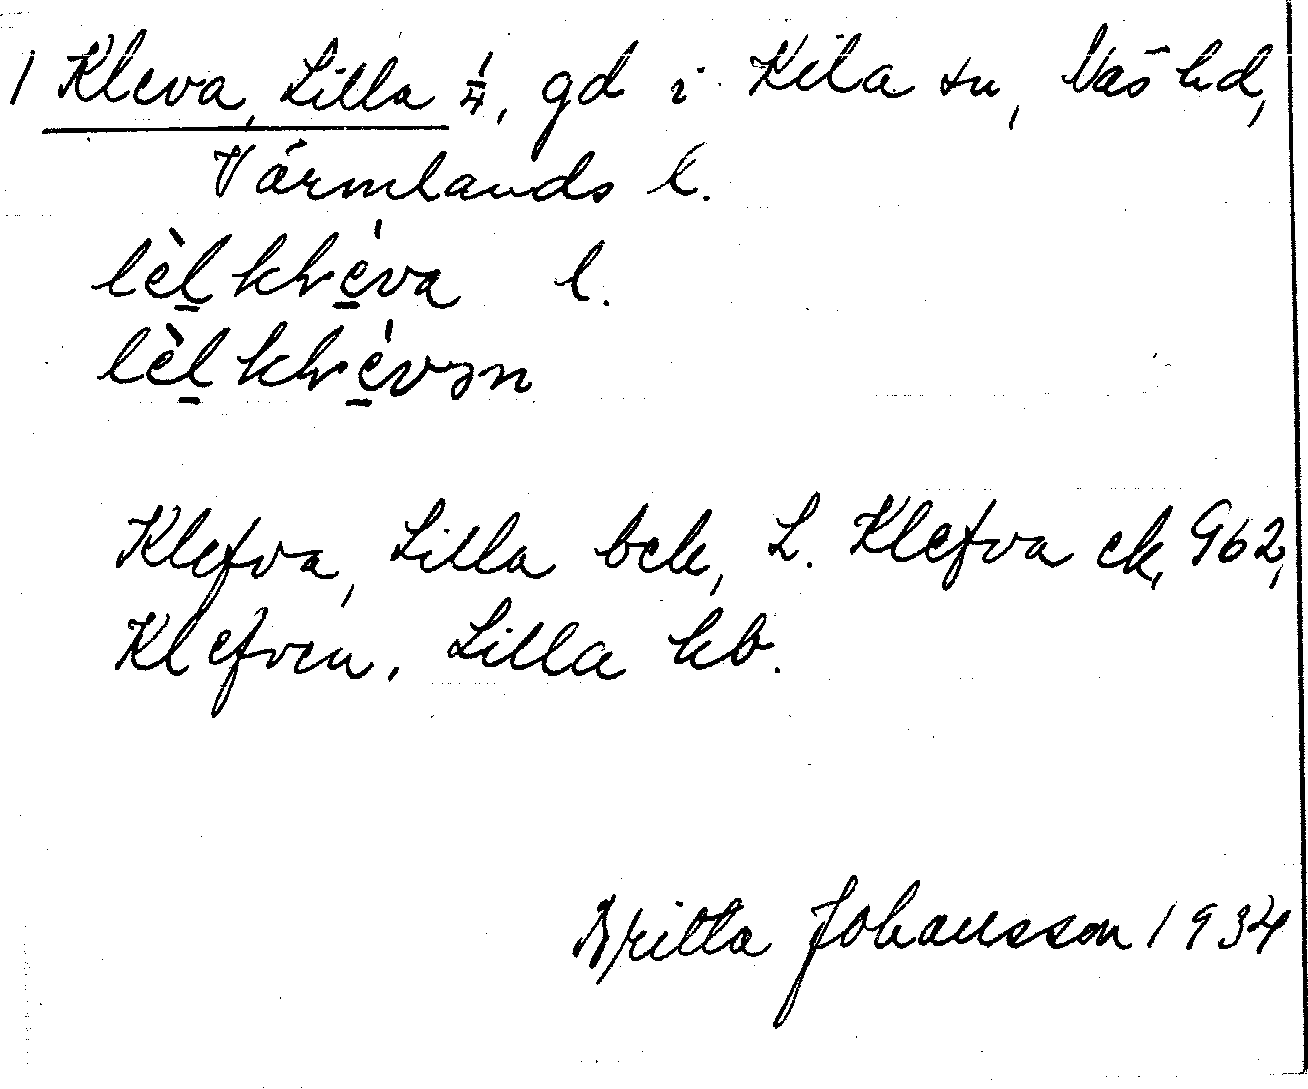 1 Kleva, Lilla 1/4, gd i Kila sn, Näs hd,
Värmlands l.
lèl klvéva l.
lèl klvévən
Klefva, Lilla bek, L. Klefva ek, 962,
Klefven, Lilla kb.
Britta Johansson 1934